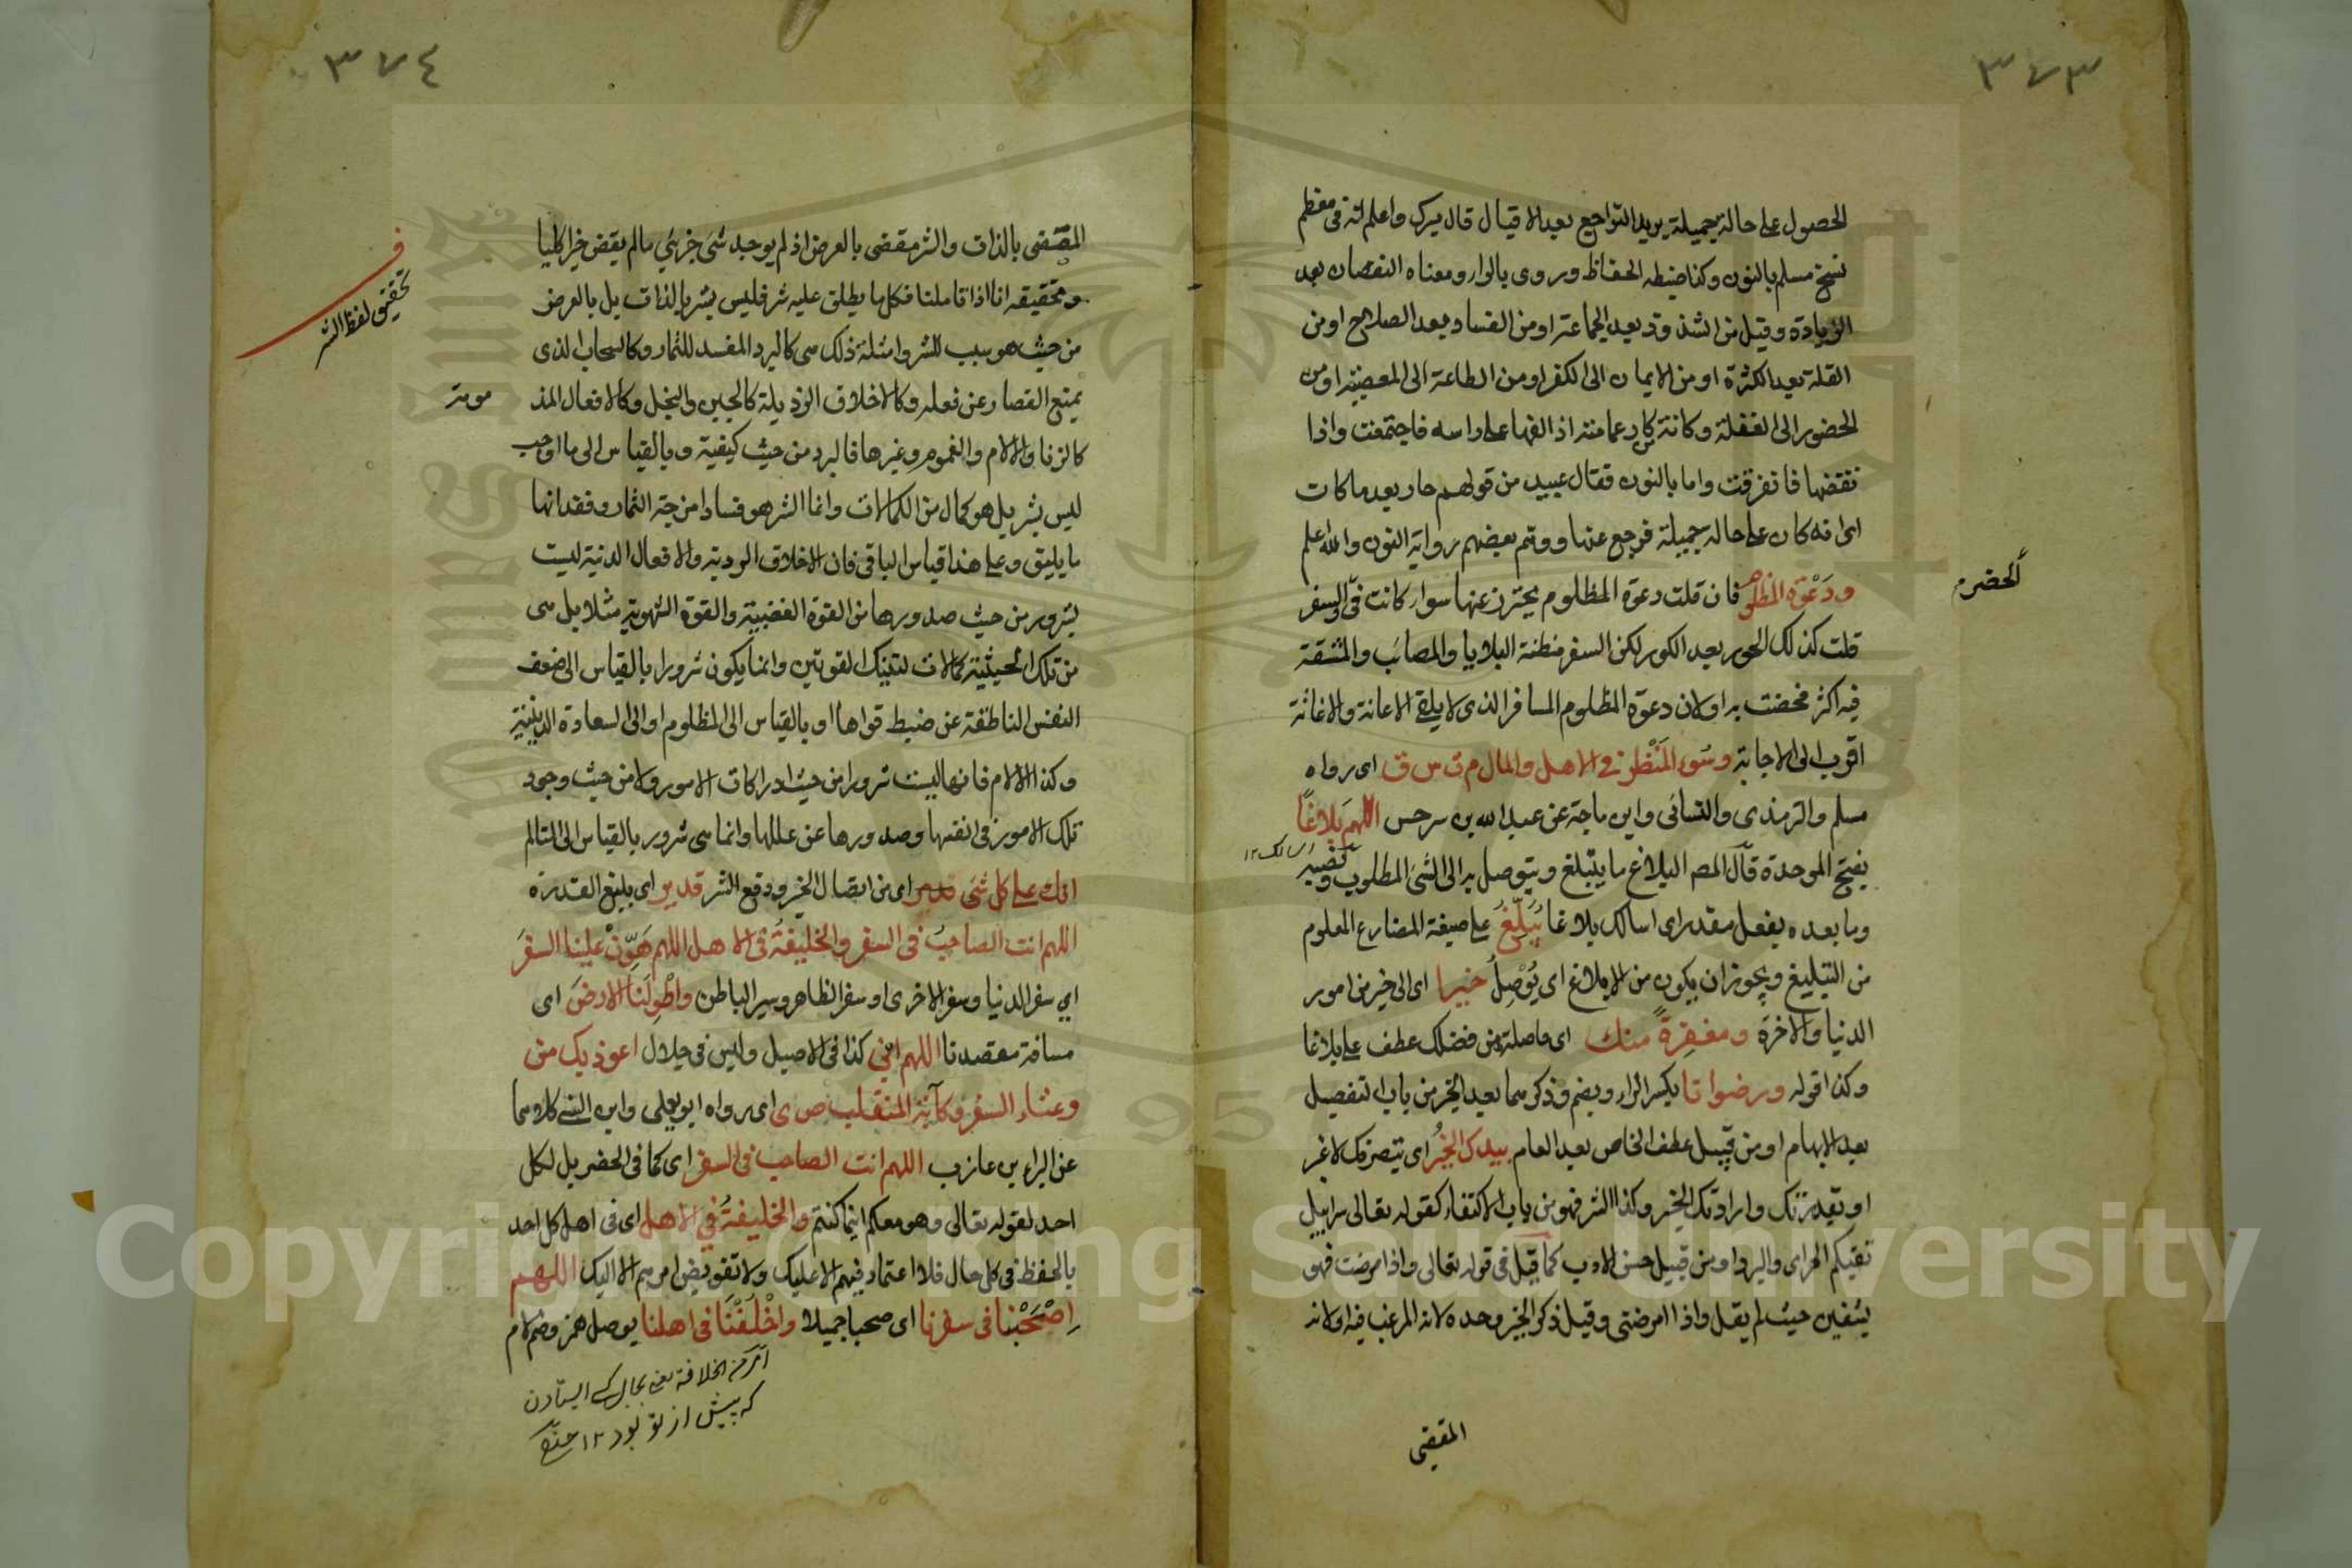 ٣٧٣
الحصول على حالة جميلة يريد التواجع بعد الاقبال قال ميرك واعلم انه فى معظم
نسخ مسلم بالنون وكذا ضبطه الحفاظ وروى بالراء ومعناه النقصان بعد
الزيادة وقيل من الشذوذ بعد الجماعة او من الفساد بعد الصلاح او من
القلة بعد الكثرة او من الايمان الى الكفر او من الطاعة الى المعصية او من
الحضور الى الغفلة وكانه كار عمامته اذا لفها على راسه فاجتمعت واذا
نقضها فانفرقت واما بالنون فقال عبيد من قولهم حار بعد ما كان
اى انه كان على حالة جميلة فرجع عنها ووهم بعضهم رواية النون والله اعلم
ودَعْوَة المظلوم فان قلت دعوة المظلوم يحترز عنها سواء كانت فى السفر
الحضر م
قلت كذلك الحور بعد الكور لكن السفر مظنة البلايا والمصائب والمشقة
فيه اكثر فخصت به اولان دعوة المظلوم المسافر الذى لا يلقى الاعانة والاغاثة
اقرب الى الاجابة وسُوء المَنْظر فى الاهل والمال م ت س ق اى رواه
مسلم والترمذى والنسائى وابن ماجة عن عبد الله بن سرجس اللهم بَلاغًا
بفتح الموحدة قال المص البلاغ ما يتبلغ ويتوصل به الى الشئ المطلوب ونصبه
اسالك ١٢
وما بعده بفعل مقدر اى اسالك بلاغا يُبَلِّغُ على صيغة المضارع المعلوم
من التبليغ ويجوز ان يكون من الابلاغ اى يُوْصِلُ خيرا اى الى خير من امور
الدنيا والاخرة ومغفِرةً منك اى حاصلة من فضلك عطف على بلاغا
وكذا قوله ورضوانا بكسر الراء ويضم وذكرهما بعد الخير من باب التفصيل
بعد الابهام او من قبيل عطف الخاص بعد العام بيدك الخيرُ اى بتصرفك لا غير
او بقدرتك وارادتك الخير وكذا الشر فهو من باب الاكتفاء كقوله تعالى سرابيل
تقيكم الحر اى والبرد او من قبيل حسن الادب كما قيل فى قوله تعالى واذا مرضت فهو
يشفين حيث لم يقل واذا امرضنى وقيل ذكر الخير وحده لانه المرغب فيه اولانه
المقضى
٣٧٤
المقضى بالذات والشر مقضى بالعرض اذ لم يوجد شئ جزئي مالم يقض خيرا كليا
وتحقيقه انا اذا تاملنا فكلما يطلق عليه شر فليس بشر بالذات بل بالعرض
تحقيق لفظ الشر
من حيث هو سبب للشر وامثلة ذلك هى كالبرد المفسد للثمار وكالسحاب الذى
يمنع القصار عن فعله وكالاخلاق الرذيلة كالجبن والبخل وكالافعال المذ
مومة
كالزنا والالام والغموم وغيرها فالبرد من حيث كيفية وبالقياس الى ما اوجب
ليس بشر بل هو كمال من الكمالات وانما الشر هو فساد امزجة الثمار وفقدانها
ما يليق وعلى هذا قياس الباقى فان الاخلاق الردية والافعال الدنية ليست
بشرور من حيث صدورها من القوة الغضبية والقوة الشهوية مثلا بل هى
من تلك الحيثية كمالات لتينك القوتين وانما يكون شرورا بالقياس الى ضعف
النفس الناطقة عن ضبط قواها او بالقياس الى المظلوم او الى السعادة الدينية
وكذا الالام فانها ليست شرورا من حيث ادراكات الامور ولا من حيث وجود
تلك الامور فى انفسها وصدورها عن عللها وانما هى شرور بالقياس الى المتالم
انك على كل شئ قدير اى من ايصال الخير ودفع الشر قدير اى بليغ القدرة
اللهم انت الصاحبُ فى السفر والخليفةُ فى الاهل اللهم هَوِّنْ علينا السفَرَ
اى سفر الدنيا وسفر الاخرى او سفر الظاهر وسير الباطن واطْوِ لَنا الارضَ اى
مسافة مقصدنا اللهم انى كذا فى الاصيل وليس فى جلال اعوذ بك من
وعثاء السفر وكآبة المنقلب ص ى اى رواه ابو يعلى وابن السنى كلاهما
عن البراء بن عازب اللهم انت الصاحب فى السفر اى كما فى الحضر بل لكل
احد لقوله تعالى وهو معكم اينما كنتم والخليفةُ فى الاهل اى فى اهل كل احد
بالحفظ فى كل حال فلا اعتماد فيهم الا عليك ولا تفويض امرهم الا اليك اللهم
اِصْحَبْنا فى سفرنا اى صحبا جميلا واخْلُفْنَا فى اهلنا بوصل همز وضم لام
امر من الخلافة يعنى بجاى كسى ايستادن
كه پيش از تو بود ١٢
Copyright © King Saud University
1957